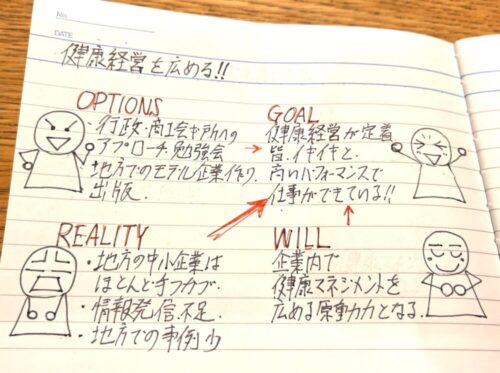 No.
DATE
健康経営を広める!!
OPTIONS
・行政・商工会キ所への
アプローチ 勉強会
地方でのモデル企業作り
出版.
GOAL
健康経営が定着
皆、イキイキと、
高いパフォーマンスで
仕事ができている!!
REALITY
・地方の中小企業は
ほとんど手つかず.
・情報発信不足.
・地方での事例少
WILL
企業内で
健康マネジメントを
広める原動力となる.